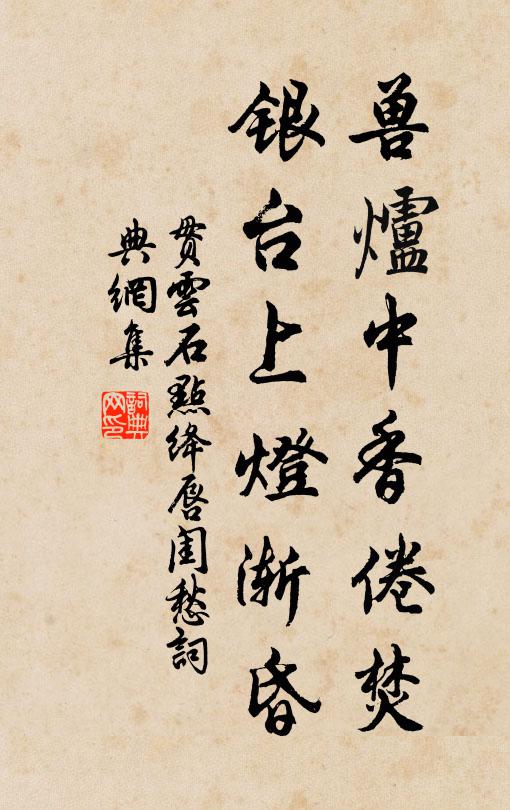 兽爐中香倦焚
银台上燈渐昏
贯雲石點绛唇闺愁詞
典網集
詞典网印